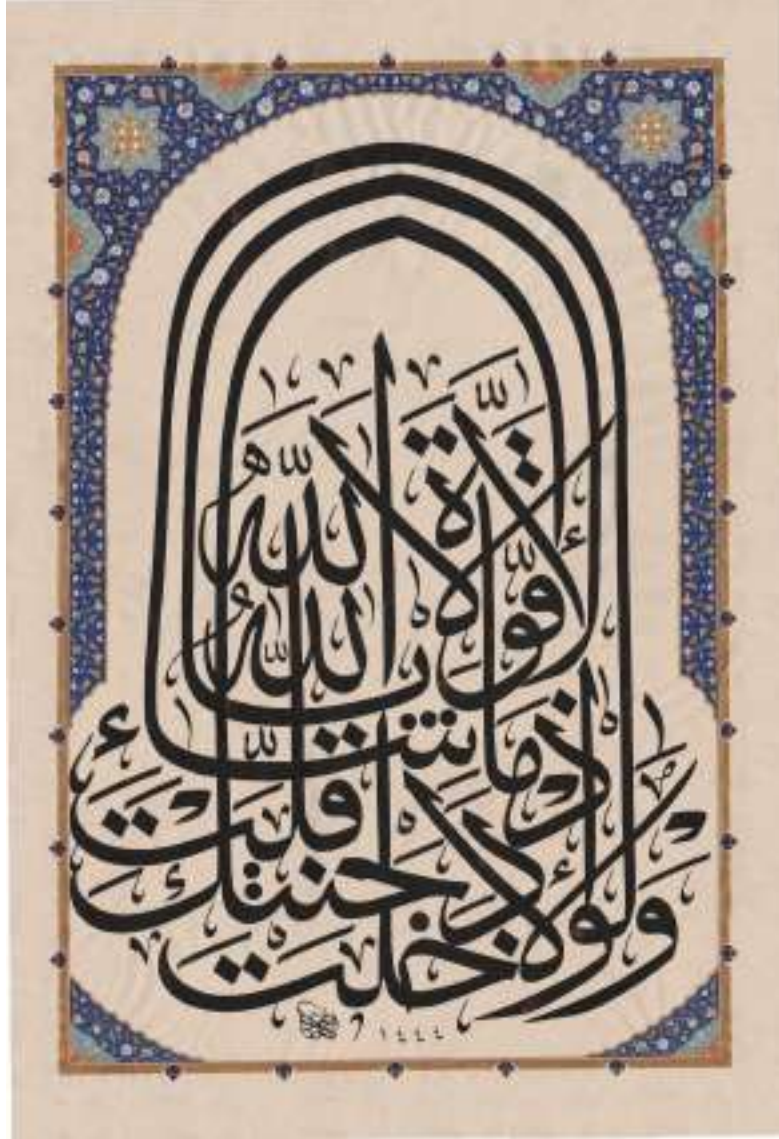 ولولا إذ دخلت جنتك قلت ما شاء الله لا قوة إلا بالله
١٤٤٤